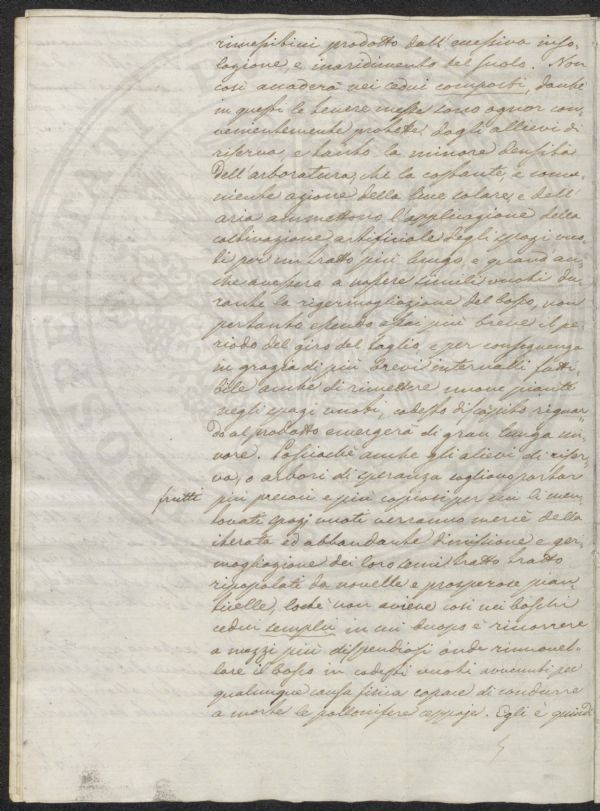 rinvestibini prodotto dall'eccessiva inso-
lazione, e inaridimento del suolo. Non
così accaderà nei cedui composti, dacchè
in questi le tenere messe sono ognor con-
venientemente protette dagli allievi di
riserva, e tanto la minore densità
dell'arboratura, che la costante, e conve-
niente azione della luce solare, e dell'
aria ammettono l'applicazione della
coltivazione artifiziale degli spazi vuo-
ti per un tratto più lungo, e quand'an-
che avessero a nascere simili vuoti du-
rante la rigermogliazione del bosco, non
pertanto essendo assai più breve il pe-
riodo del giro del taglio, e per conseguenza
in grazia di più brevi intervalli fatti-
bile anche di rimettere nuove piante
negli spazi vuoti, codesto discapito riguar-
do al prodotto emergerà di gran lunga mi-
nore. Posciachè anche gli alievi di riser-
va, o arbori di speranza sogliono portar
frutti
più precoci e più copiosi per cui li men-
tovati spazi vuoti verranno mercè della
liberata ed abbondante dimissione e ger-
mogliazione dei loro semi tratto tratto
ripopolati da novelle e prosperose pian-
ticelle, locchè non avviene così nei boschi
cedui semplici in cui duopo è ricorrere
a mezzi più dispendiosi onde rinnovel-
lare il bosco in codesti vuoti avvenuti per
qualunque causa fisica capace di condurre
a morte le pollonifere ceppaje. Egli è quindi
PROSPERITATI